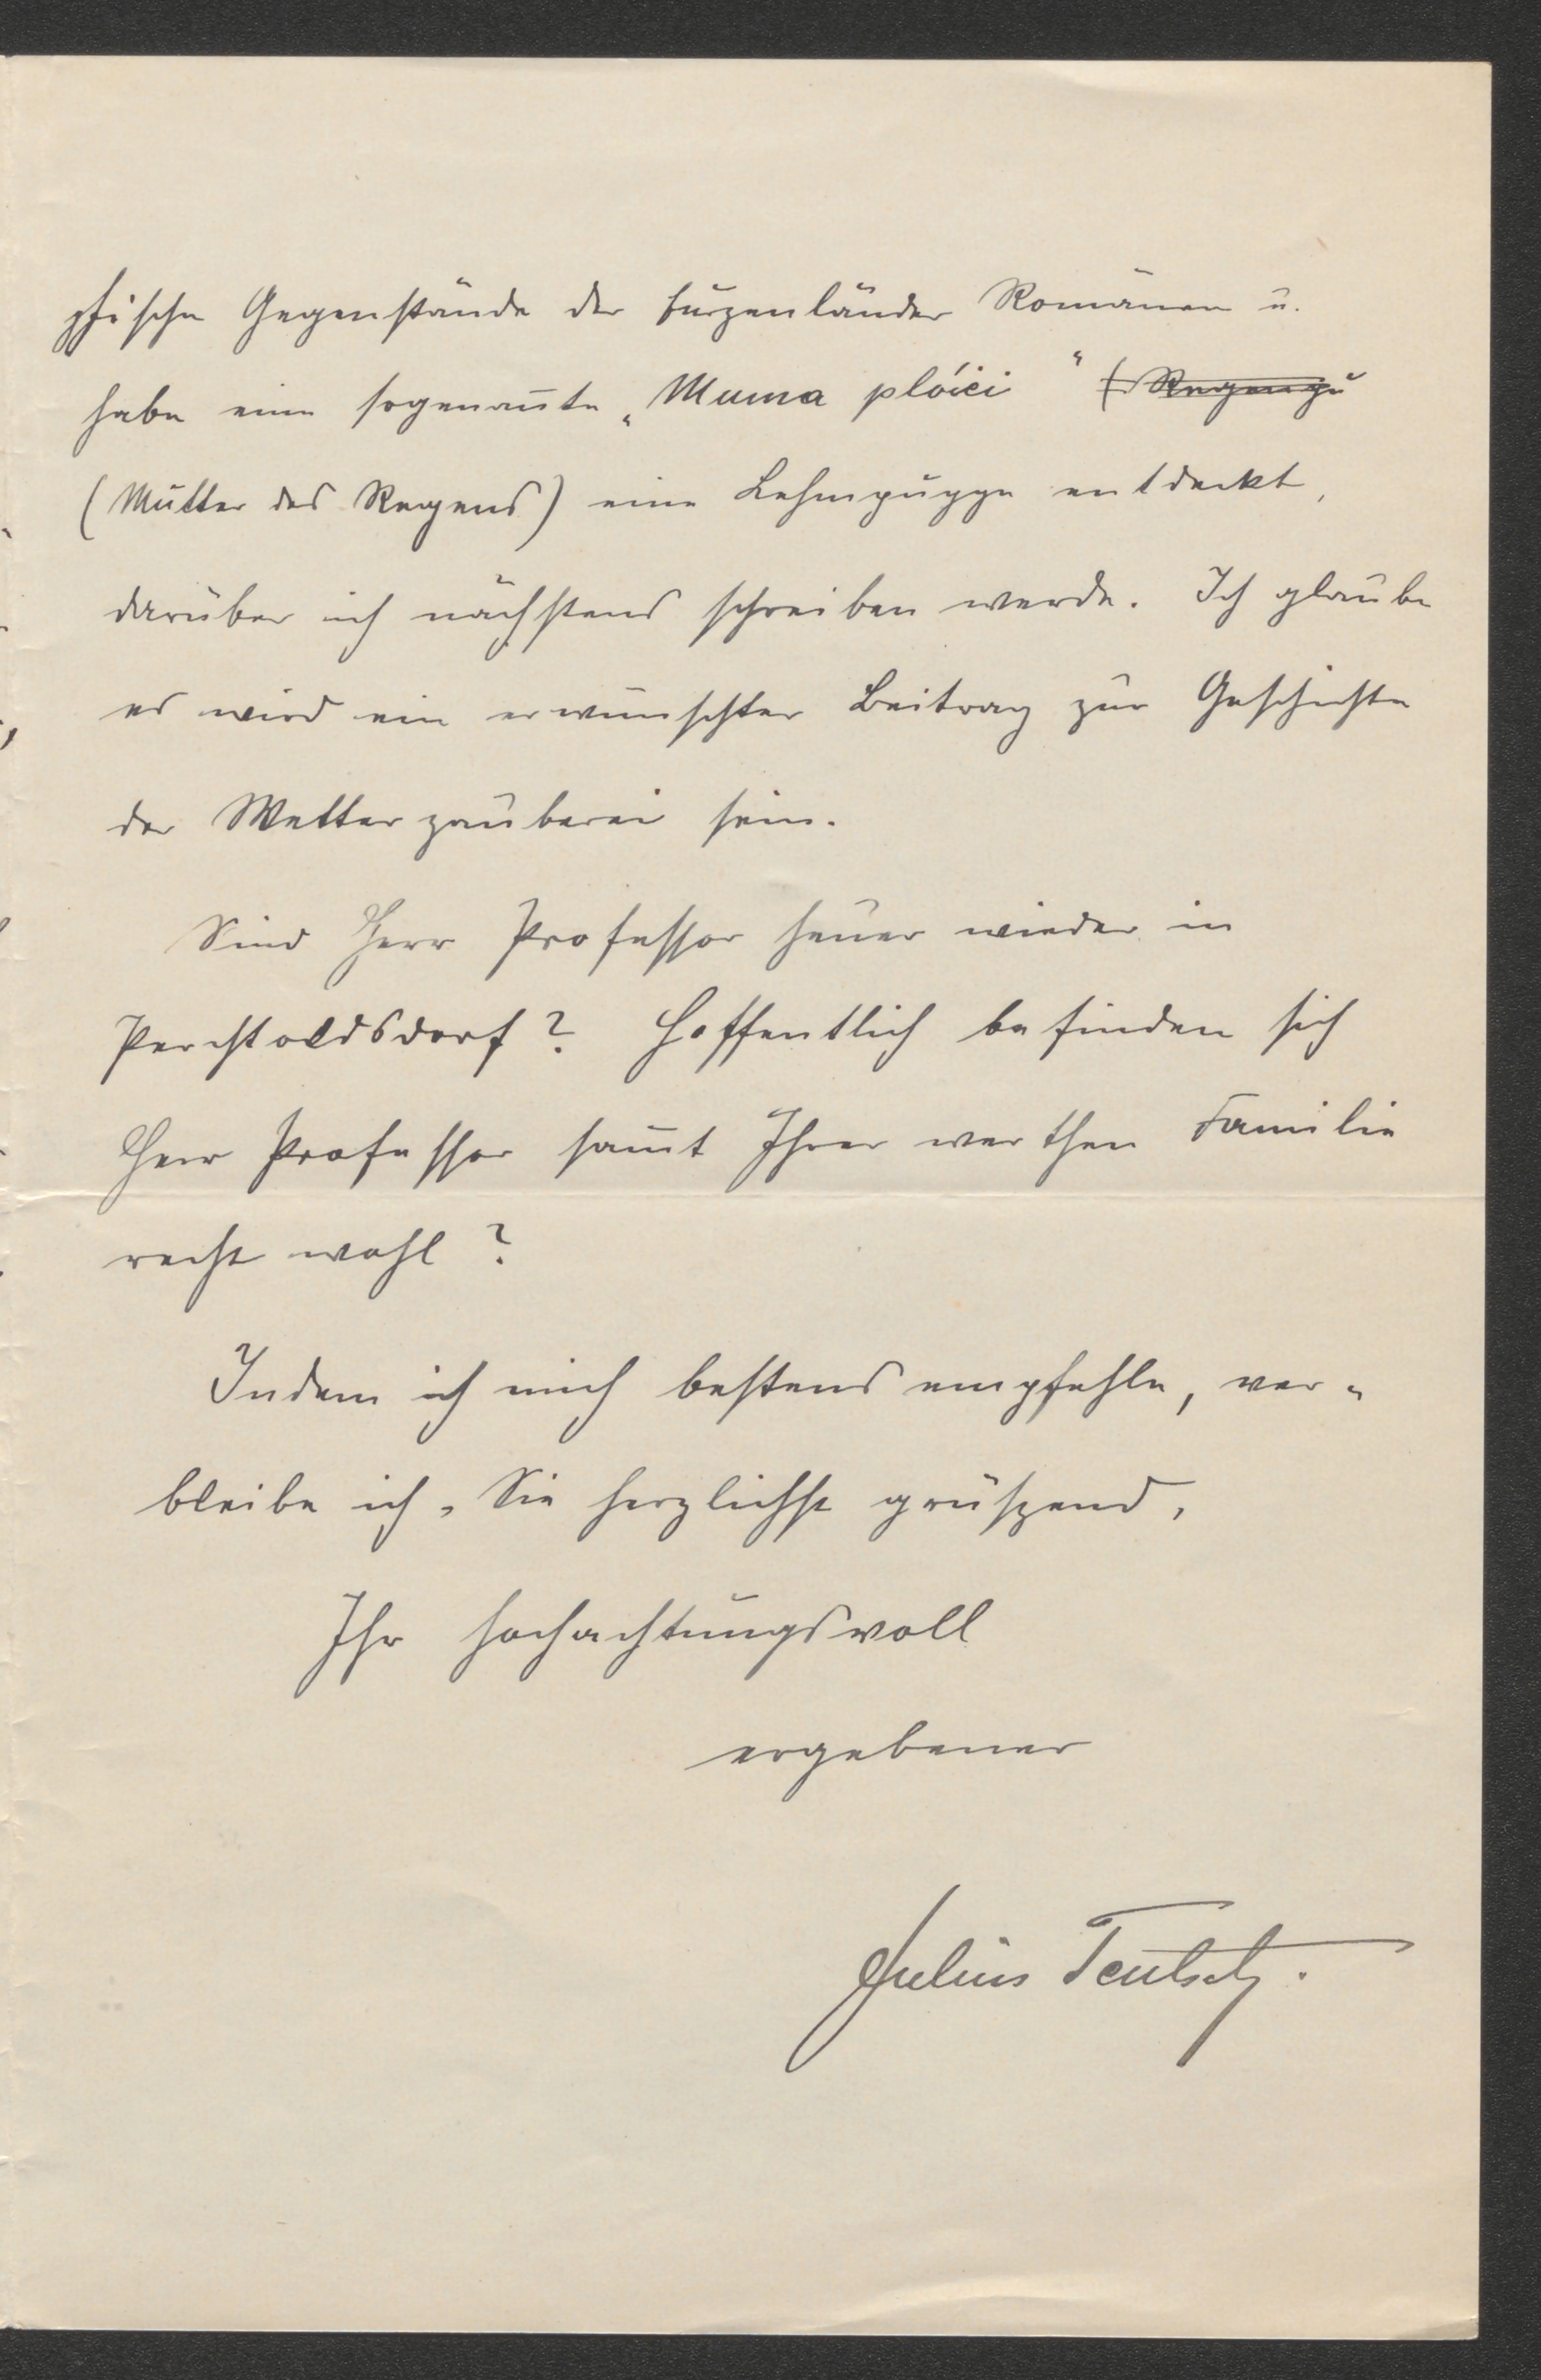 phische Gegenstände der burzenländer Romänen u.
habe eine sogenannte „Muma plóici“ (Regenpu
(Mutter des Regens) eine Lehmpuppe entdeckt,
darüber ich nächstens schreiben werde. Ich glaube
es wird ein erwünschter Beitrag zur Geschichte
der Wetterzauberei sein.
Sind Herr Professor heuer wieder in
Perchtoldsdorf? Hoffentlich befinden sich
Herr Professor samt Ihrer werthen Familie
recht wohl?
Indem ich mich bestens empfehle, ver-
bleibe ich, Sie herzlichst grüszend,
Ihr hochachtungsvoll
ergebener
Julius Teutsch.